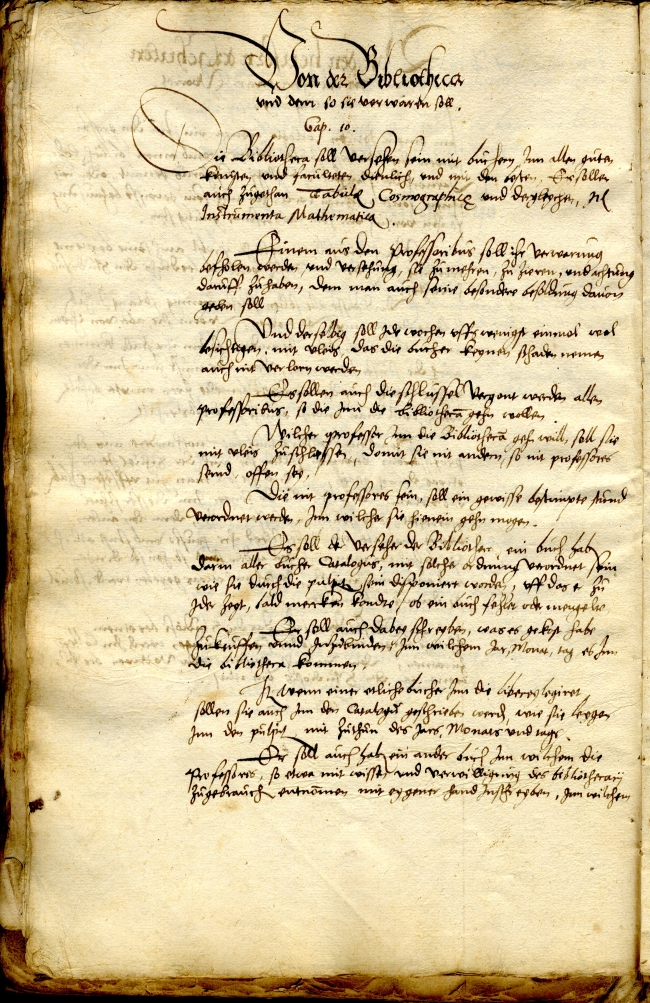 Von der Bibliotheca
und dem so sie verwaren soll.
Cap. 10.
Die Bibliotheca soll versehen sein mit büchern Inn allen güten
künsten, und faculteten dienlich, und mit den ersten. Es sollen
auch zugethan Tabulæ Cosmographicæ und dergleichen,
Instrumenta Mathematica
Einem aus den Professoribus soll ihr verwarung
befohlen werden, und versehung, sie zu mehren, zu zieren, und achtung
daruff zu haben, dem man auch seine besondere besoldung davon
geben soll
Und derselbig soll Jede wochen uffs wenigst einmol wol
besichtigen, mit vleis das die bücher keynen schaden nemen
auch nit verlorn werden
Es sollen auch die schlussel vergont werden allen
professoribus, so die Inn die Bibliothecā gehn wollen
Wilcher professor Inn die Bibliothecā gehn will, soll sie
mit vleis zuschliessen, domit sie nit andern, so nit professores
seind, offen sey.
Die nit professores sein, soll ein gewisse bestimpte stund
verordnet werden, Inn wilcher sie hienein gehn mogen.
Es soll der verseher der Bibliothec, ein buch habē
darin aller bücher Catalogus, mit solcher ordnung verordnet sein
wie sie durch die pulpet sein disponiert worden, uff das er zu
Jder zeyt, bald mercken kondte, ob ein buch fehle oder mangele
Er soll auch dabey schreyben, was es gekost habe
zukeuffen und Inzubinden, Inn wilchem Jar, Monat, tag es Inn
die bibliotheca kommen.
Jt. wenn einer etliche bücher Inn die liberey legiret
sollen sie auch Inn den Catalogū geschrieben werdē, wie sie liegen
Inn den pulpet, mit zuthun des Jars, Monats und tags.
Er soll auch habē ein ander buch Inn wilchem die
Professores, so etwa mit wissen und verwilligung des bibliothecarij
zugebrauch entnommen mit eygener hand Inschreyben, Inn wilchem